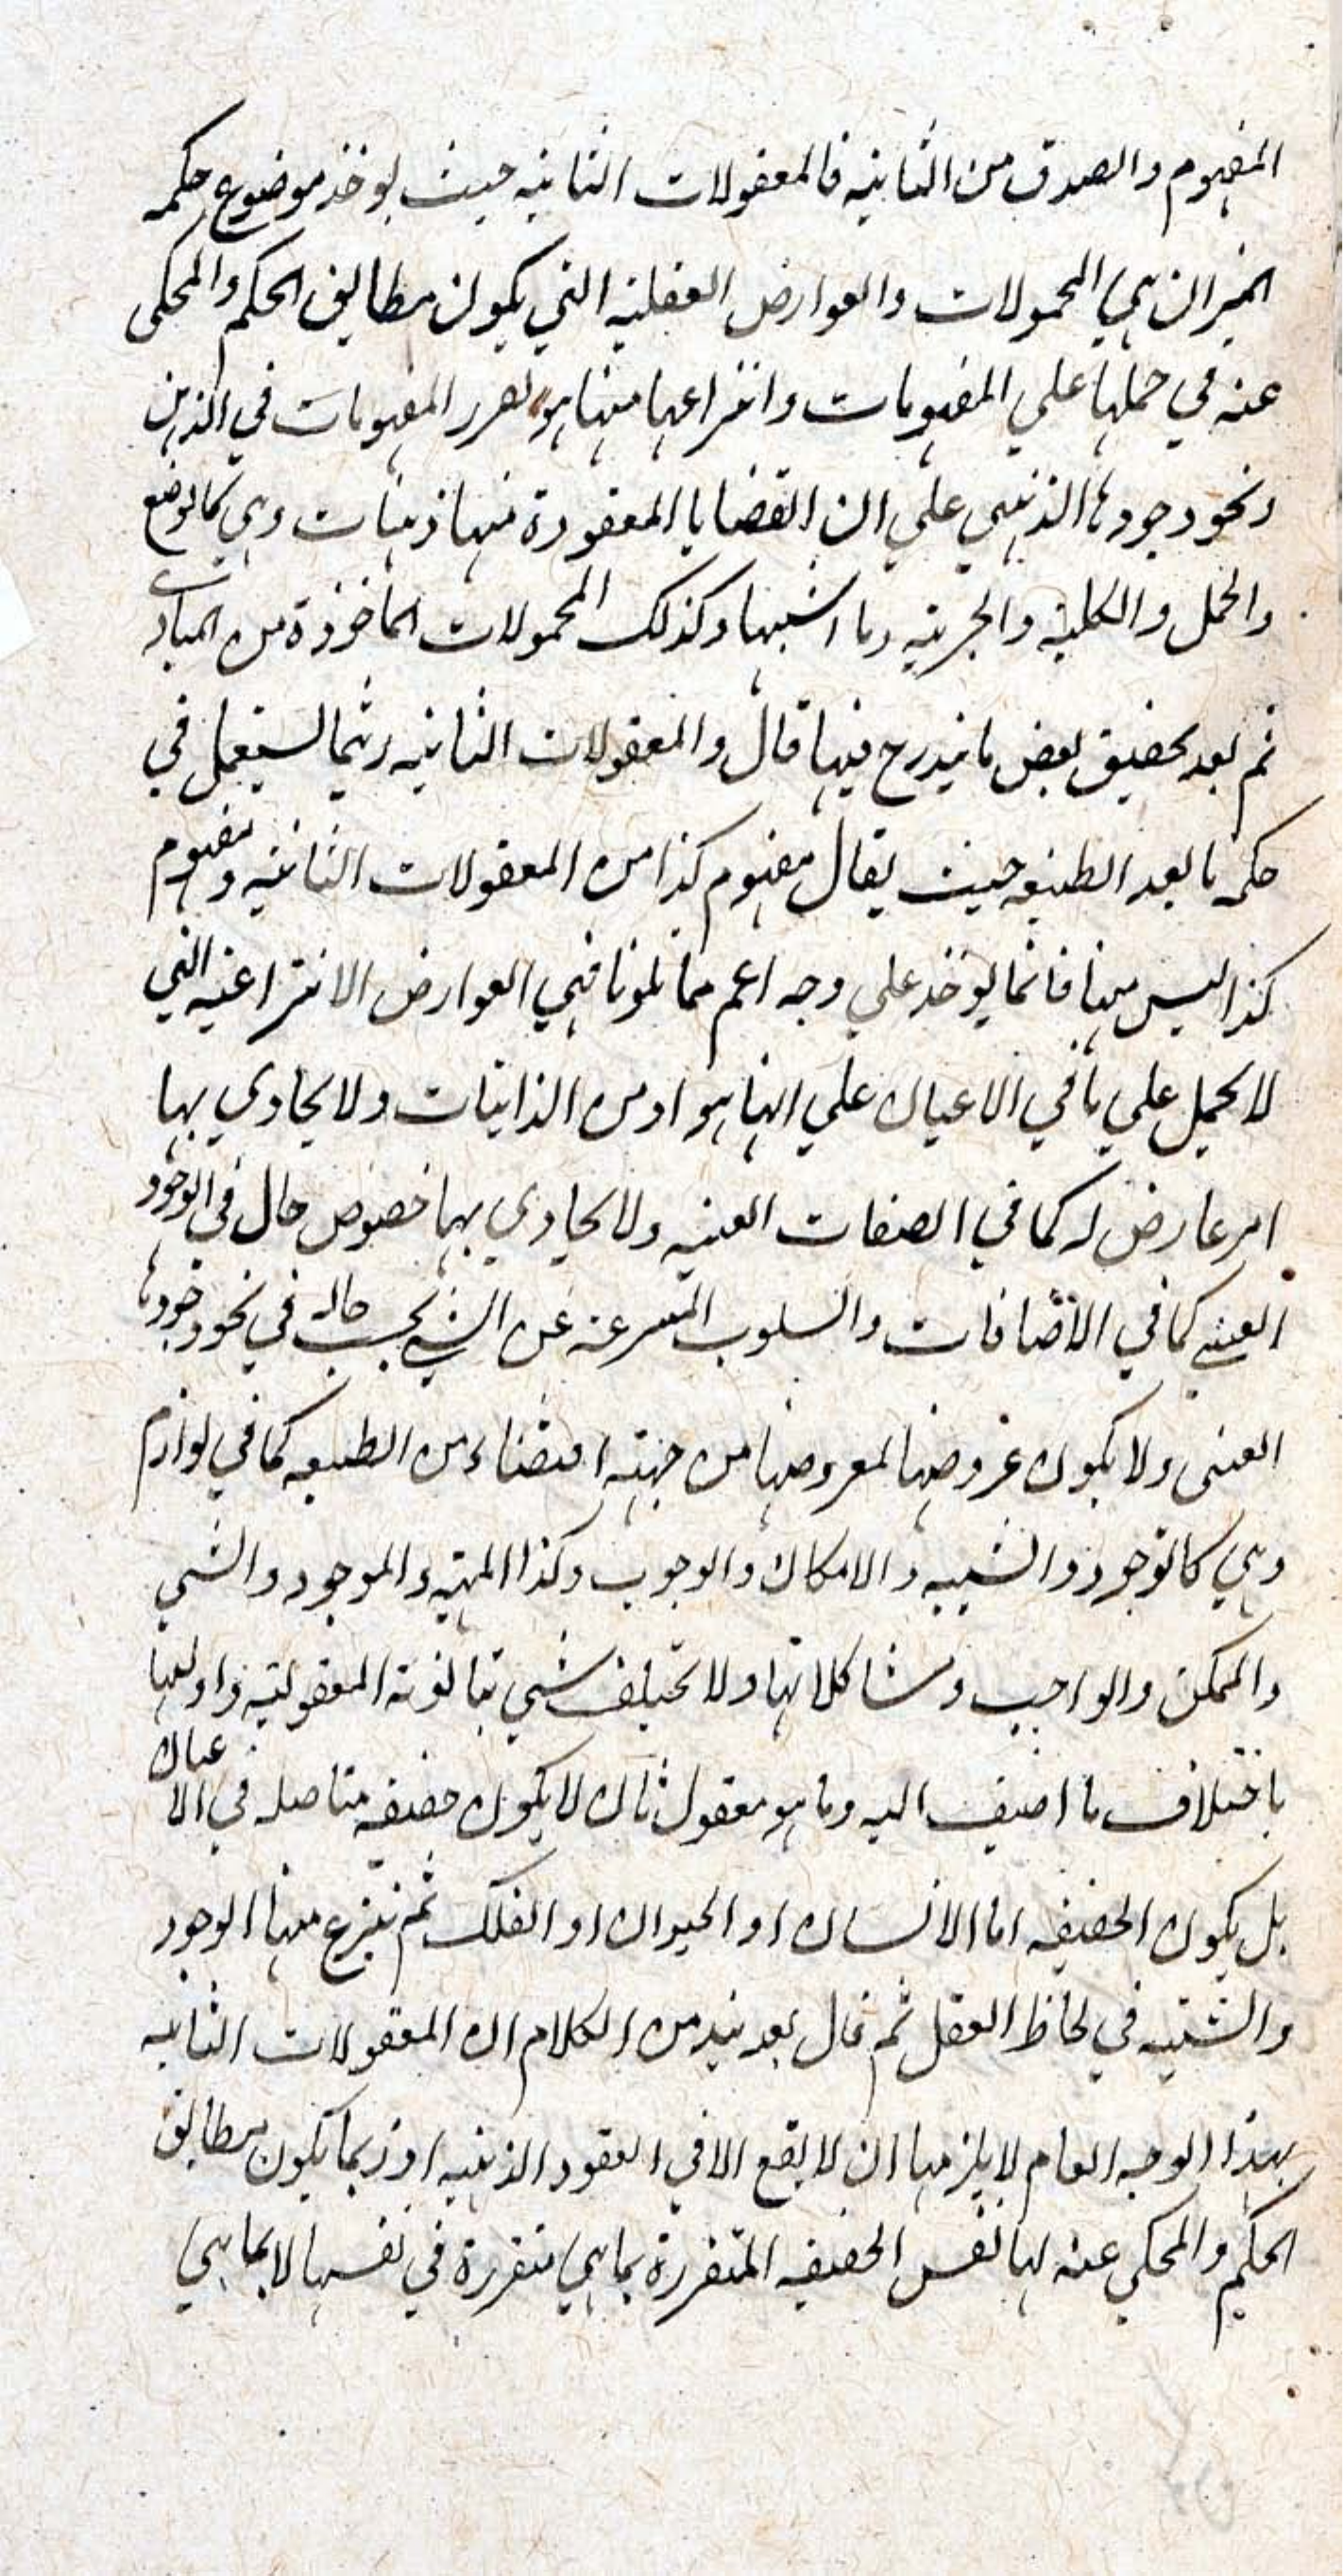 المفهوم والصدق من الثانيه فالمعقولات الثانيه حيث يوخذ موضوع حكمه
الميزان هي المحمولات والعوارض العقليه التي يكون مطابق الحكم والمحكى
عنه في حملها علي المفهومات وانتزاعها منها هو تقرر المفهومات في الذهن
ونحو وجودها الذهني علي ان القضايا المعقودة منها ذهنيات وهي كالوضع
والحمل والكليه والجزئيه وما اشبهها وكذلك المحمولات الماخوذة من المبادي
ثم بعد تحقيق بعض ما يندرج فيها قال والمعقولات الثانيه ربما يستعمل في
حكمه ما بعد الطبيعه حيث يقال مفهوم كذا من المعقولات الثانيه ومفهوم
كذا ليس منها فانما يوخذ علي وجه اعم مما تلونا فهي العوارض الانتزاعيه التي
لا يحمل علي ما في الاعيان علي انها هو او من الذاتيات ولا يحاذي بها
امر عارض له كما في الصفات العينيه ولا يحاذي بهما خصوص حال في الوجود
العيني كما في الاضافات والسلوب المنتزعه عن الشي بحسب حاله في نحو وجودها
العينى ولا يكون عروضها لمعروضها من جهته اقتضاء من الطبيعه كما في لوازم
وهي كالوجود والشييه والامكان والوجوب وكذا المهيه والموجود والشي
والممكن والواجب ومشاكلاتها ولا تختلف شي بثانوية المعقوليه واوليها
باختلاف ما اضيف اليه وما هو معقول ثان لا يكون حقيقه متاصله في الاعيان
بل يكون الحقيقه اما الانسان او الحيوان او الفلك ثم ينتزع منها الوجود
والشييه في لحاظ العقل ثم قال بعد نبذ من الكلام ان المعقولات الثانيه
بهذا الوجه العام لا يلزمها ان لا يقع الا في العقود الذهنيه اذ ربما يكون مطابق
الحكم والمحكي عنه لها نفس الحقيقه المتقررة بما هي متقررة في نفسها لا بما هي